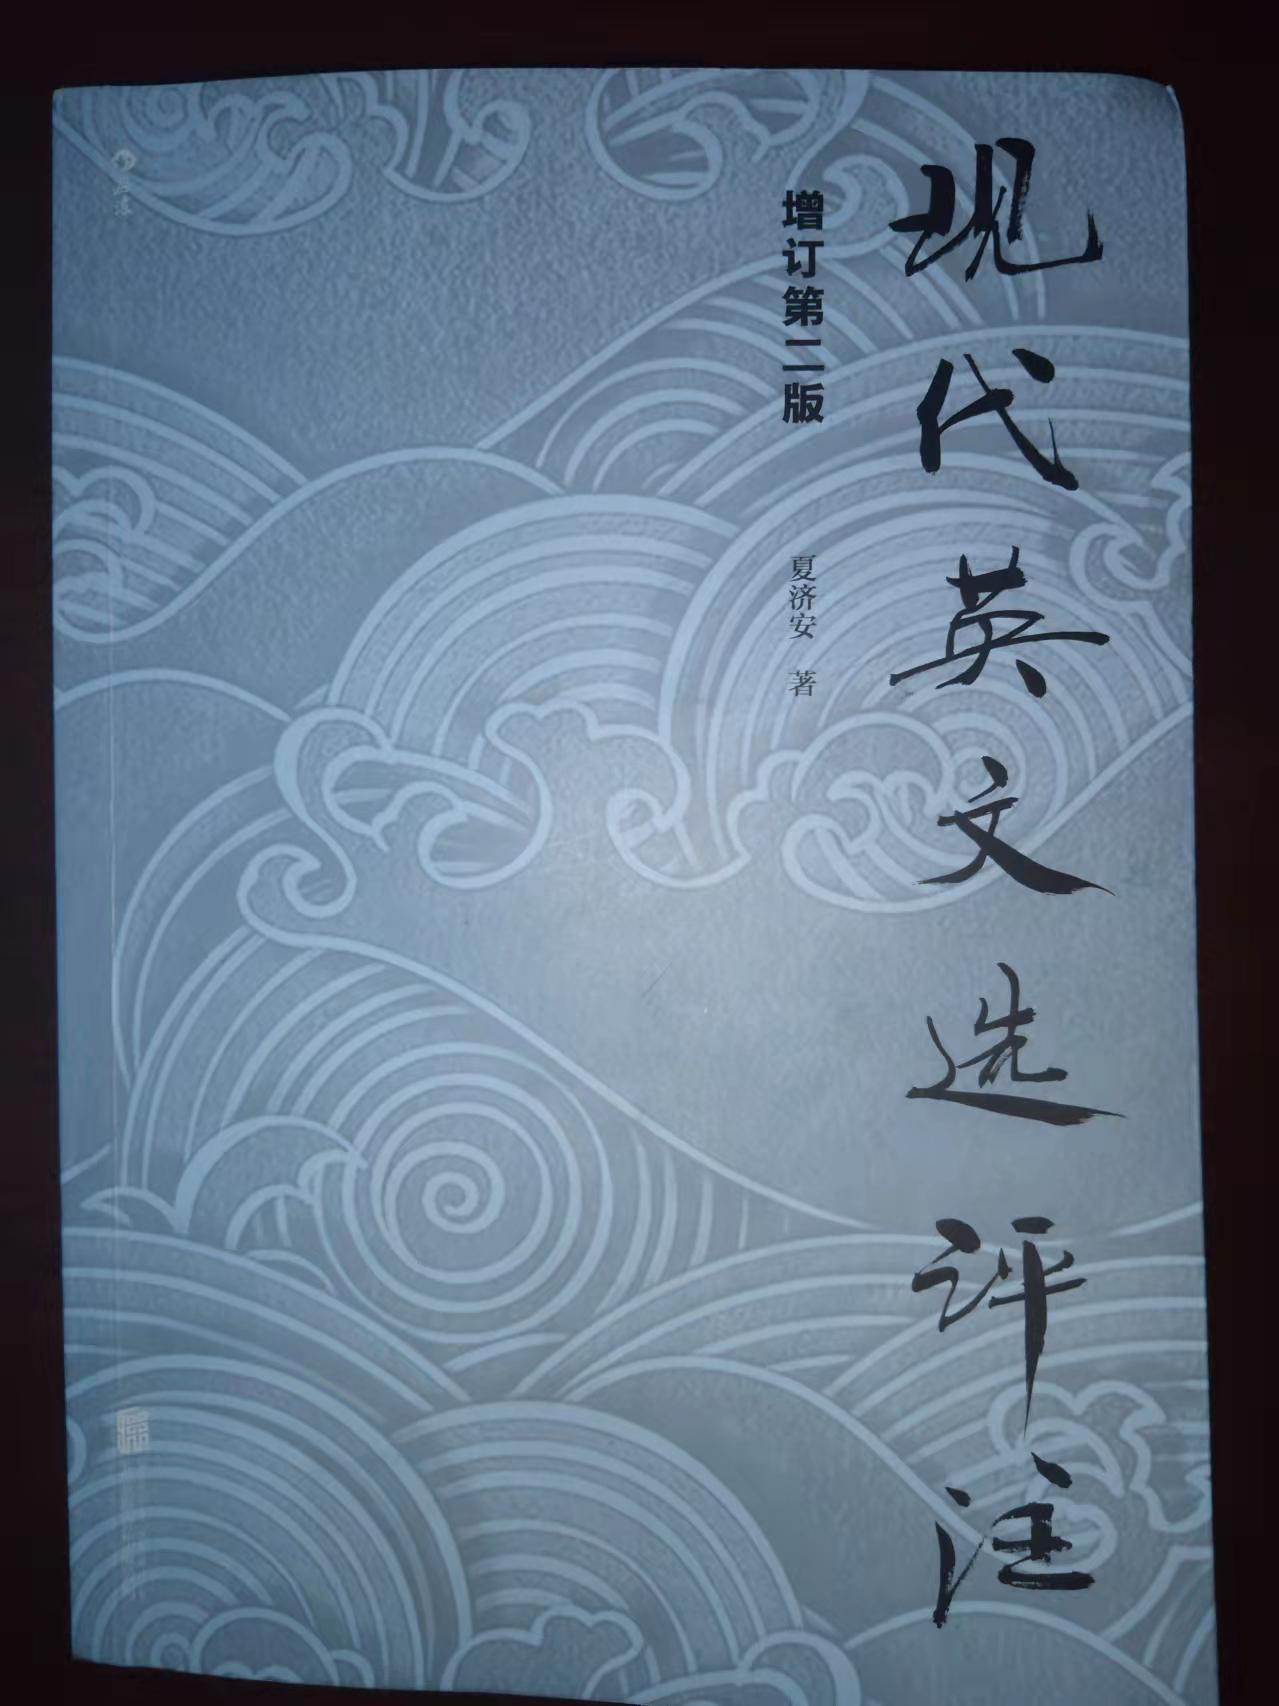 现代英文选评注
增订第二版
夏济安 著